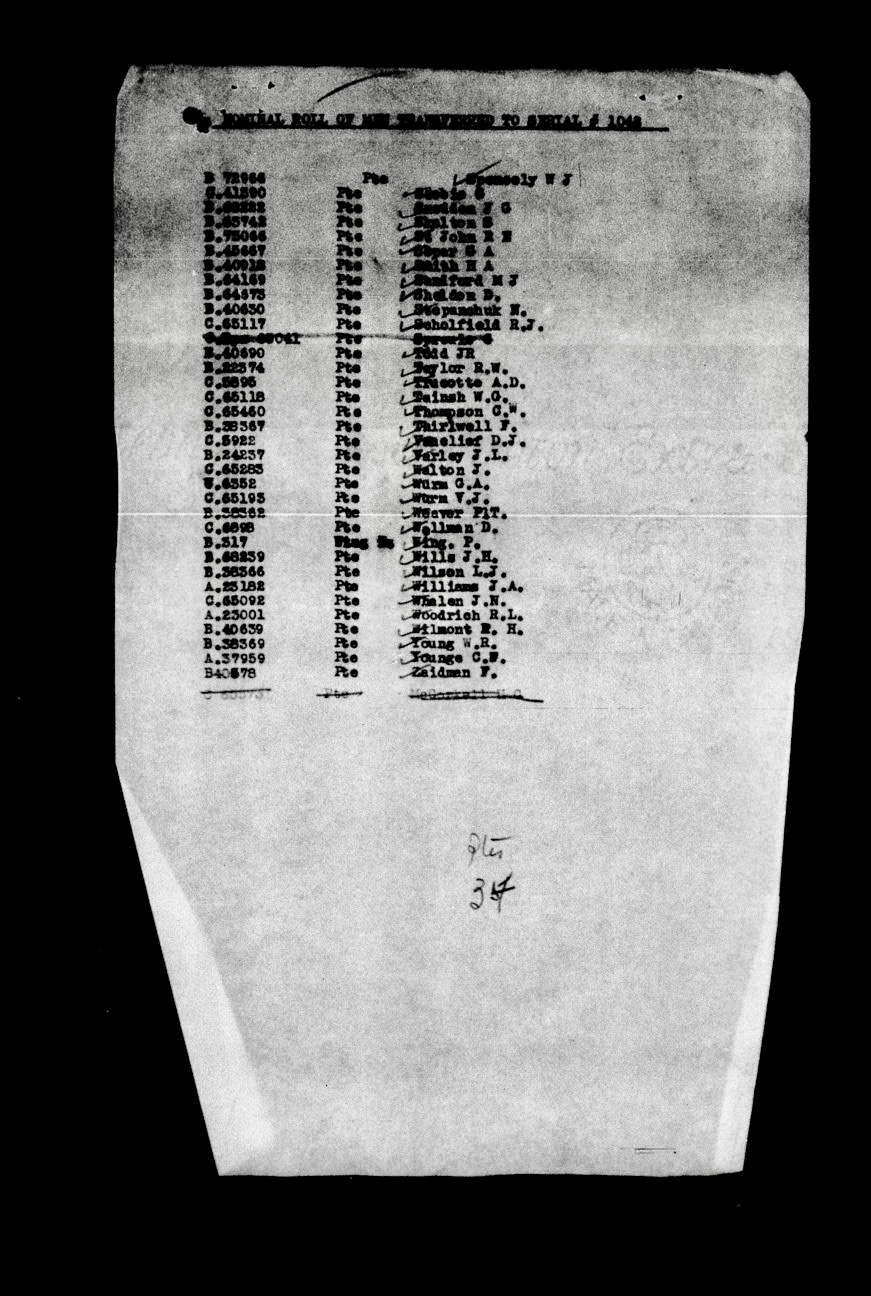 NOMINAL ROLL OF MEN TRANSFERRED TO SERIAL # 1042
B 72966 Pte Spensely W J
C.41390 Pte
Pte J G
Pte Shelton S
B.75066 Pte St John R N
B.45667 Pte S A
Pte Smith H A
B.64169 Pte Sandford M J
B.64573 Pte Sheldon D.
B.40630 Pte Stepanchuk N.
C.65117 Pte Scholfield R.J.
Pte
B.40690 Pte Todd JR
B.22374 Pte Taylor R.W.
C.5895 Pte Trucotte A.D.
C.65118 Pte Tainsh W.G.
C.65460 Pte Thompson C.W.
B.38367 Pte Thirlwell F.
C.5922 Pte Vanelief D.J.
B.24237 Pte Varley J.L.
C.65283 Pte Walton J.
W.6352 Pte Wurm G.A.
C.65193 Pte Wurm V.J.
B.38362 Pte Weaver P1T.
C.6898 Pte Wellman D.
B.317 Wing. P.
B.68239 Pte Wills J.H.
B.38366 Pte Wilson L.J.
A.23182 Pte Williams J.A.
C.65092 Pte Whalen J.N.
A.23001 Pte Woodrich R.L.
B.40639 Pte Wilmont R. H.
B.38369 Pte Young W.R.
A.37959 Pte Younge C.F.
B40678 Pte Zaidman F.
C 65373 Pte McCorkell H C
Ptes
34